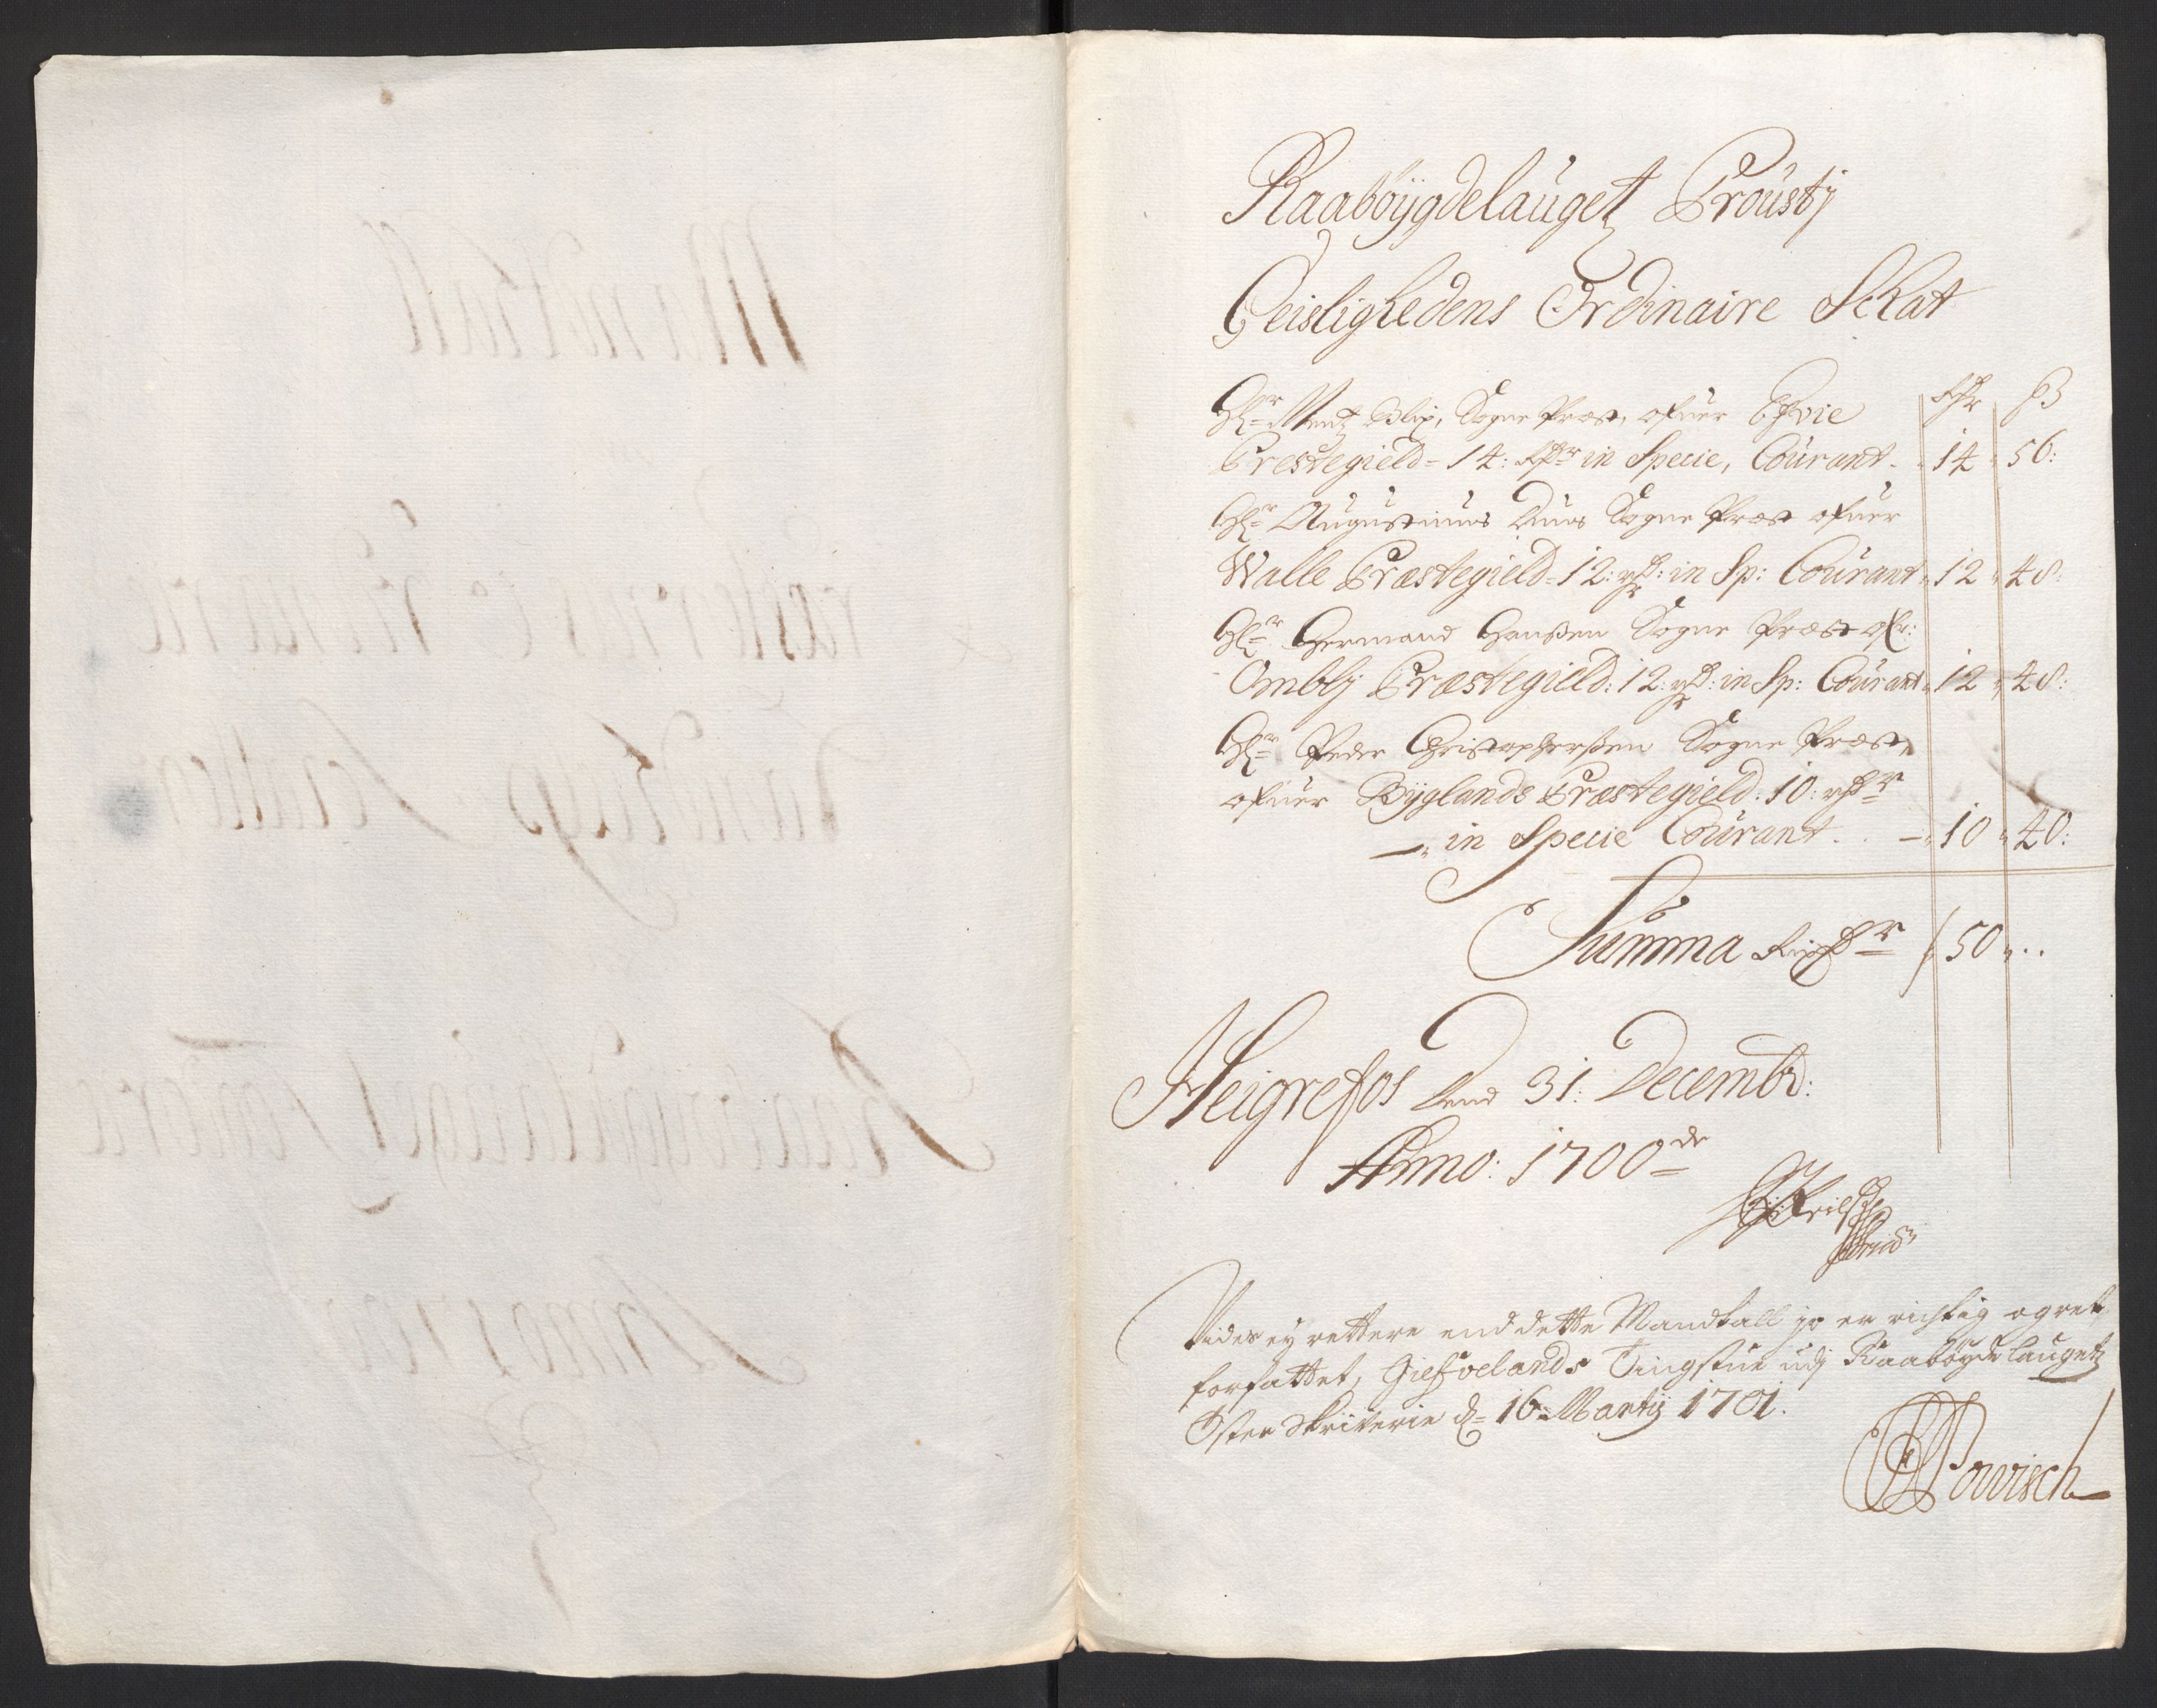 Raabøygdelauget Prousti
Geisligheedens Ordinaire Schat
Rdr ß
Hr Mentz Blix, Sogne Præst, ofuer Efvie
Prestegield 14: Rdr in Specie, Courant 14 56:
Hr Augustinus Duus Sogne Præst ofuer
Walle Præstegield 12: rdr: in Sp: Courant 12 48:
Hr Hermand Hanßen Sogne Præst ofr:
Ombli Præstegield: 12: rdr: in Sp: Courant 12 48:
Hr Peder Christopherßen Sogne Præst,
ofuer Byglands Præstegield: 10: rdr
in Specie Courant 10 40:
Summa Rixdr 50
Heigrefos Dend 31: Decembr:
Anno: 1700de
Vides ey rettere end dette Mandtall jo er richtig og ret
forfattet, Giefvelands Tingstue udj Raabøyde laugetz
Øster Skriverie d= 16 Martij 1701.
Powisch